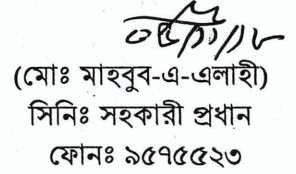 (মোঃ মাহবুব-এ-এলাহী)
সিনিঃ সহকারী প্রধান
ফোনঃ ৯৫৭৫৫২৩